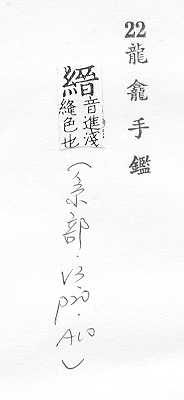 22龍龕手鑑
縉
音進淺
縫色也
(糸部·V3·p20·A10)